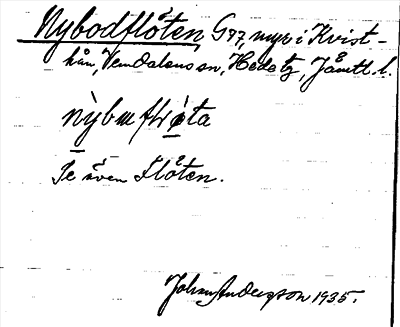 Nybodflöten, G77, myr i Kvist-
hån, Vemdalens sn, Hede tg, Jämtl. l.
Se även Flöten.
Johan Anderson 1935.